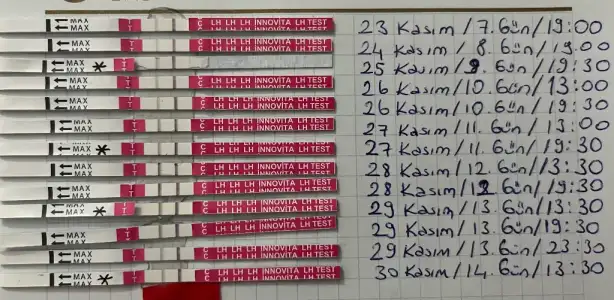 MAX T C LH LH LH INNOVİTA LH TEST 23 Kasım / 7. Gün / 19:00
MAX T C LH LH LH INNOVİTA LH TEST 24 Kasım / 8. Gün / 19.00
MAX * T 25 Kasım / 9. Gün / 19:30
MAX T C LH LH LH INNOVİTA LH TEST 26 Kasım / 10. Gün / 13:00
MAX T C LH LH LH INNOVİTA LH TEST 26 Kasım / 10. Gün / 19:30
MAX T C LH LH LH INNOVİTA LH TEST 27 Kasım / 11. Gün / 13:00
MAX * T C LH LH LH INNOVİTA LH TEST 27 Kasım / 11. Gün / 19:30
MAX T C LH LH LH INNOVİTA LH TEST 28 Kasım / 12. Gün / 13:30
MAX T C LH LH LH INNOVİTA LH TEST 28 Kasım / 12 Gün / 19:30
MAX * T C LH LH LH INNOVİTA LH TEST 29 Kasım / 13. Gün / 13:30
MAX T C LH LH LH INNOVİTA LH TEST 29 Kasım / 13. Gün / 19:30
MAX T C LH LH LH INNOVİTA LH TEST 29 Kasım / 13. Gün / 23:30
MAX * T C LH LH LH INNOVİTA LH TEST 30 Kasım / 14. Gün / 13:30